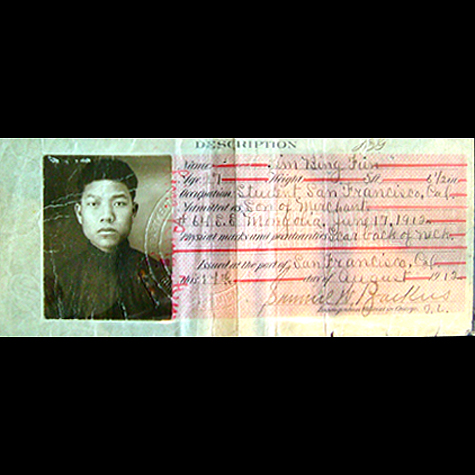 DESCRIPTION
Name Em Bing Fun
Age Height 5 ft. 6 1/2 in.
Occupation Student, San Francisco, Cal.
Admitted as Son of Merchant
S.S. Mongolia, Jany 17, 1912
Physical marks and peculiarities Scar back of neck.
Issued at the port of San Francisco, Cal.
this day of August 1912
Samuel W. Backus
in Charge.